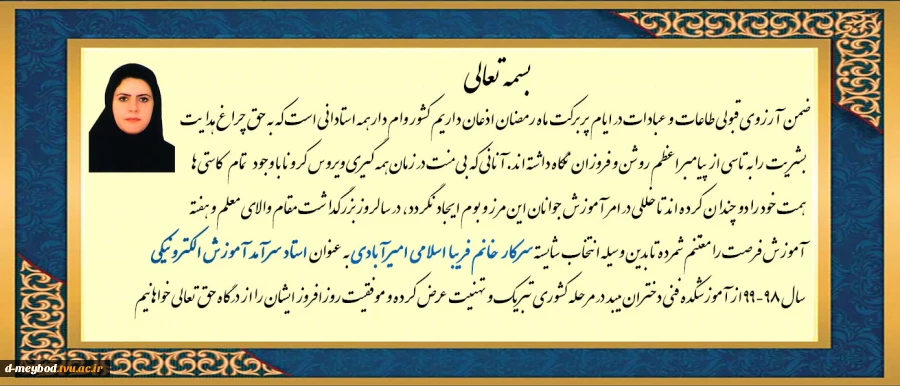 بسمه تعالی
ضمن آرزوی قبولی طاعات و عبادات در ایام پر برکت ماه رمضان اذعان داریم کشور وام دار همه استادانی است که به حق چراغ هدایت
بشریت را به تاسی از پیامبر اعظم روشن و فروزان نگاه داشته اند، آنانی که بی منت در زمان همه گیری ویروس کرونا با وجود تمام کاستی ها
همت خود را دو چندان کرده اند تا خللی در امر آموزش جوانان این مرز و بوم ایجاد نگردد، در سالروز بزرگداشت مقام والای معلم و هفته
آموزش فرصت را مغتنم شمرده تا بدین وسیله انتخاب شایسته سرکار خانم فریبا اسلامی امیرآبادی به عنوان استاد سرآمد آموزش الکترونیکی
سال ۹۸-۹۹ از آموزشکده فنی دختران میبد در مرحله کشوری تبریک و تهنیت عرض کرده و موفقیت روز افزور ایشان را از درگاه حق تعالی خواهانیم
d-meybod.tvu.ac.ir